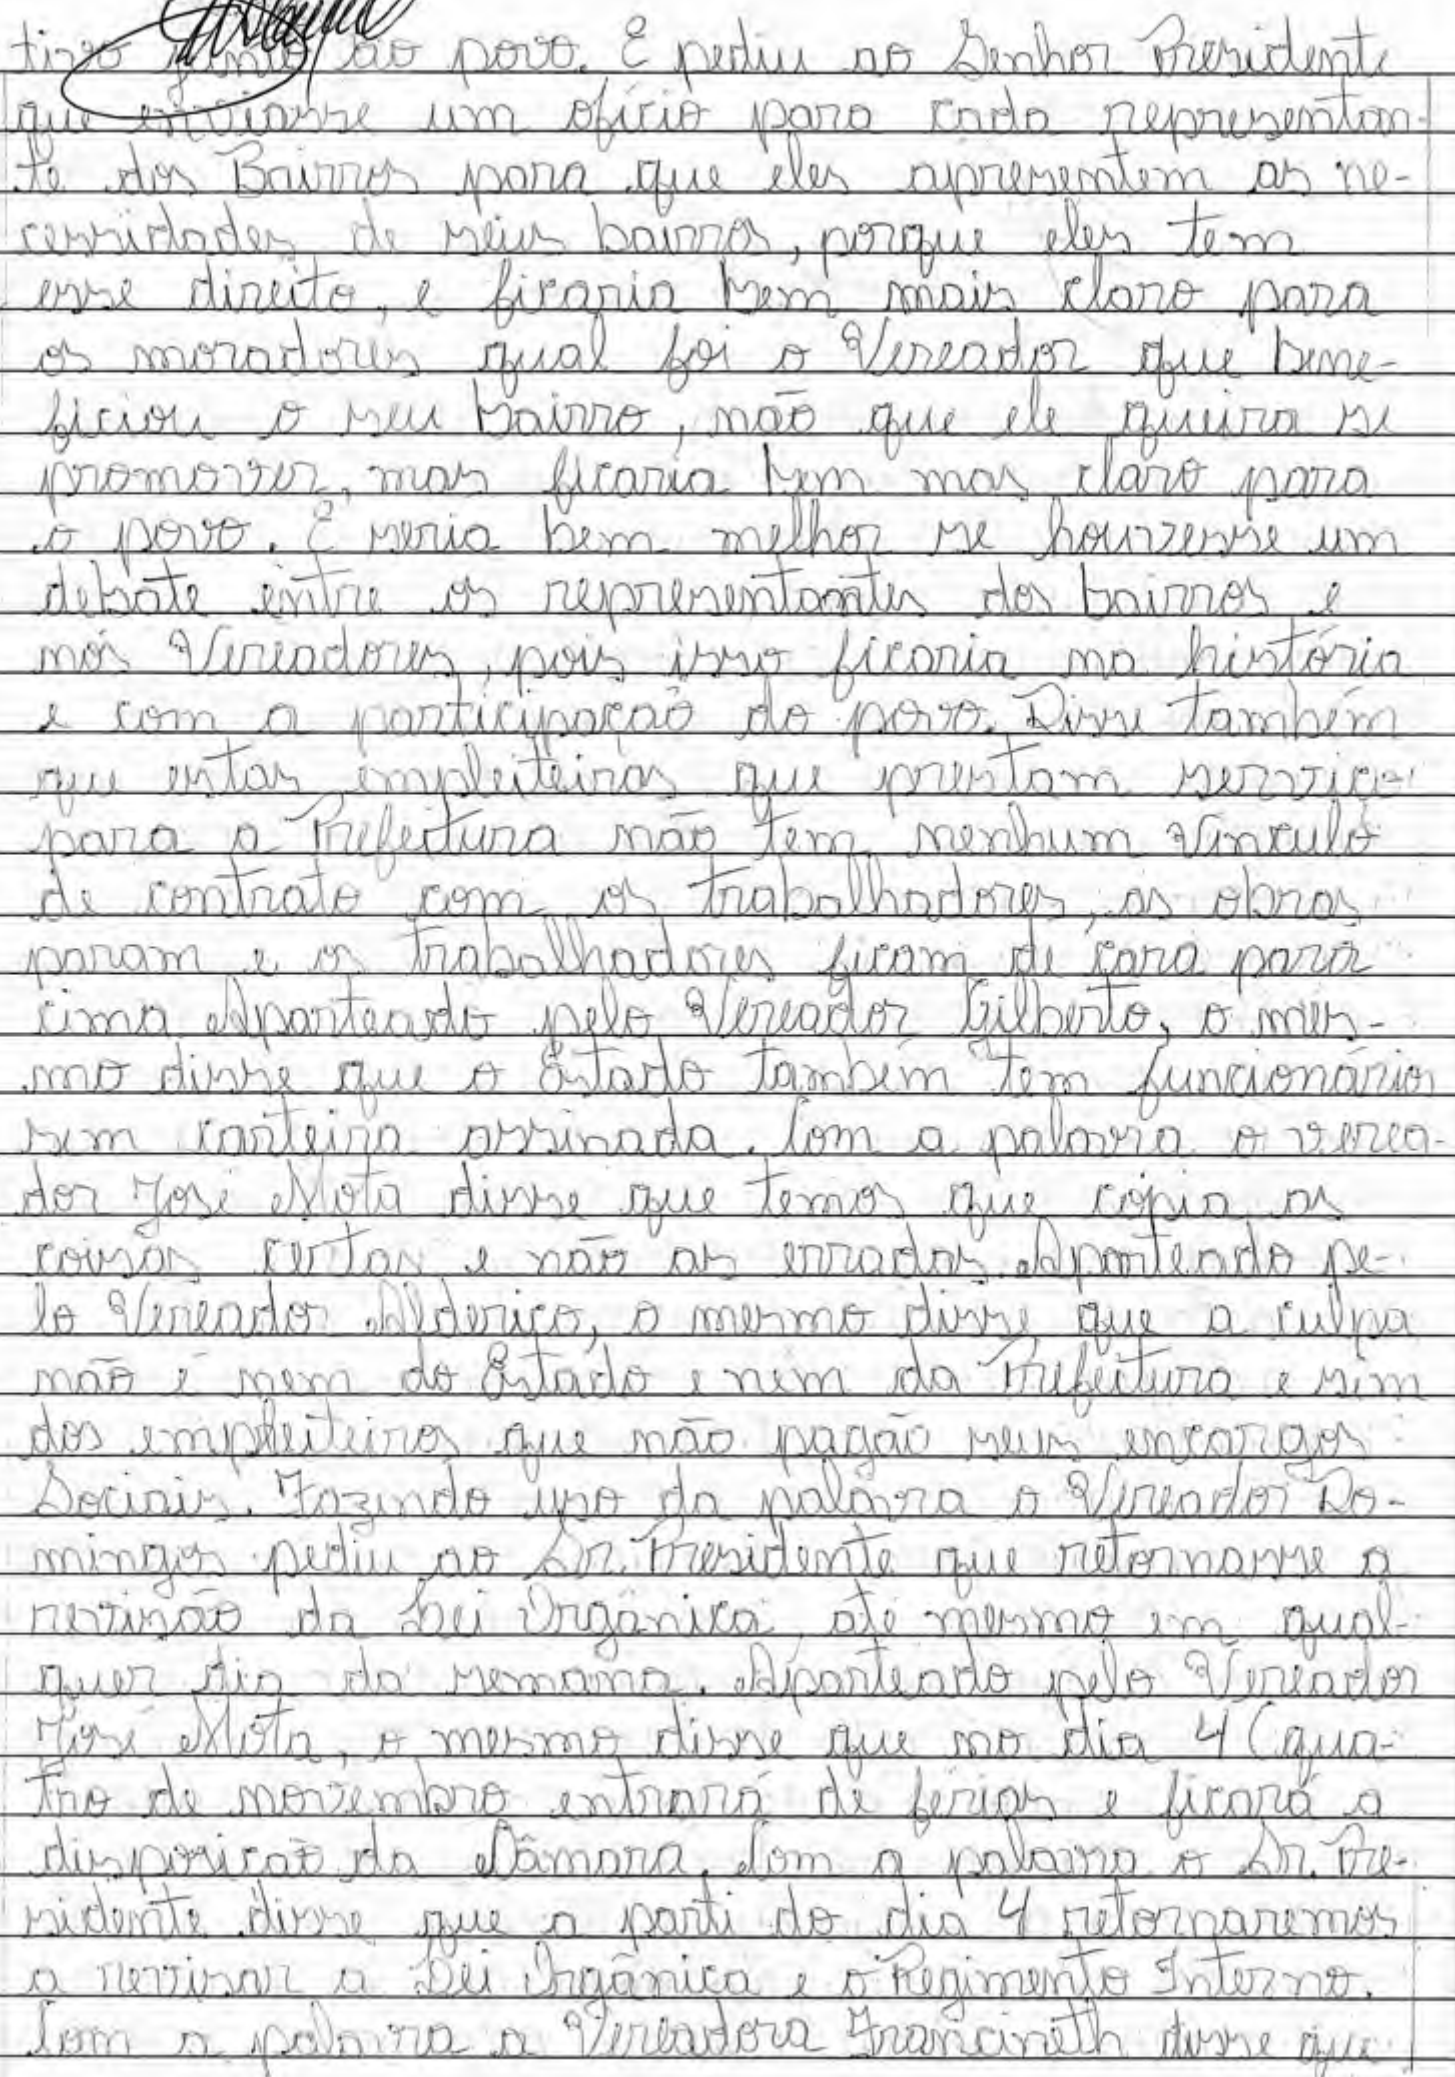 tivo junto ao povo. E pediu ao Senhor Presidente
que enviasse um ofício para cada representan-
te dos Bairros para que eles apresentem as ne-
cessidades de seus bairros, porque eles tem
esse direito, e ficaria bem mais claro para
os moradores qual foi o Vereador que bene-
ficiou o seu bairro, não que ele queira se
promover, mas ficaria bem mas claro para
o povo. E seria bem melhor se houvesse um
debate entre os representantes dos bairros e
nós Vereadores, pois isso ficaria na história
e com a participação do povo. Disse também
que estas empleiteiras que prestam serviço
para a Prefeitura não tem nenhum vínculo
de contrato com os trabalhadores, as obras
param e os trabalhadores ficam de cara para
cima Aparteado pelo Vereador Gilberto, o mes-
mo disse que o Estado também tem funcionários
sem carteira assinada. Com a palavra o verea-
dor José Mota disse que temos que copia as
coisas certas e não as erradas. Aparteado pe-
lo Vereador Alderico, o mesmo disse que a culpa
não é nem do Estado e nem da Prefeitura e sim
dos empleiteiros que não pagão seus encargos
Sociais. Fazendo uso da palavra o Vereador Do-
mingos pediu ao Sr. Presidente que retornasse a
revisão da Lei Orgânica, até mesmo em qual-
quer dia da semana. Aparteado pelo Vereador
José Mota, o mesmo disse que no dia 4 (qua-
tro de novembro entrará de férias e ficará a
disposicão da Câmara. Com a palavra o Sr. Pre-
sidente disse que a parti do dia 4 retornaremos
a revisar a Lei Orgânica e o Regimento Interno.
Com a palavra a Vereadora Francineth disse que